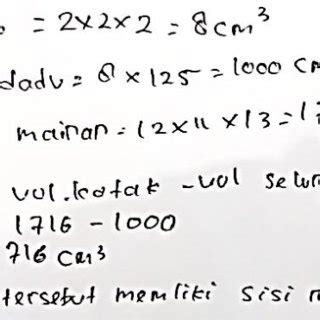 = 2×2×2 = 8cm³
dadu = 8 × 125 = 1000 cm
mainan = 12 × 11 × 13 = 1
vol. kotak - vol selur
1716 - 1000
716 cm³
tersebut memliki sisi